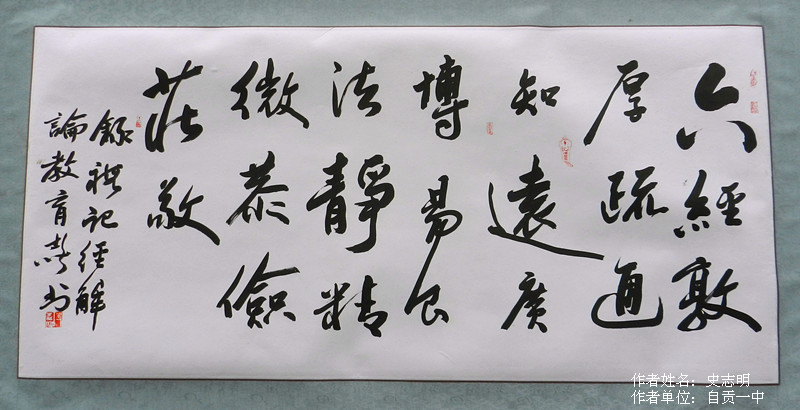 六經敦
厚疏通
知遠廣
博易良
法靜精
微恭儉
莊敬
錄禮記經解
論教育 書
作者姓名：史志明
作者单位：自贡一中